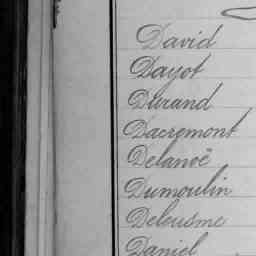 David
Dayot
Durand
Dacremont
Delanoë
Dumoulin
Deleusme
Daniel